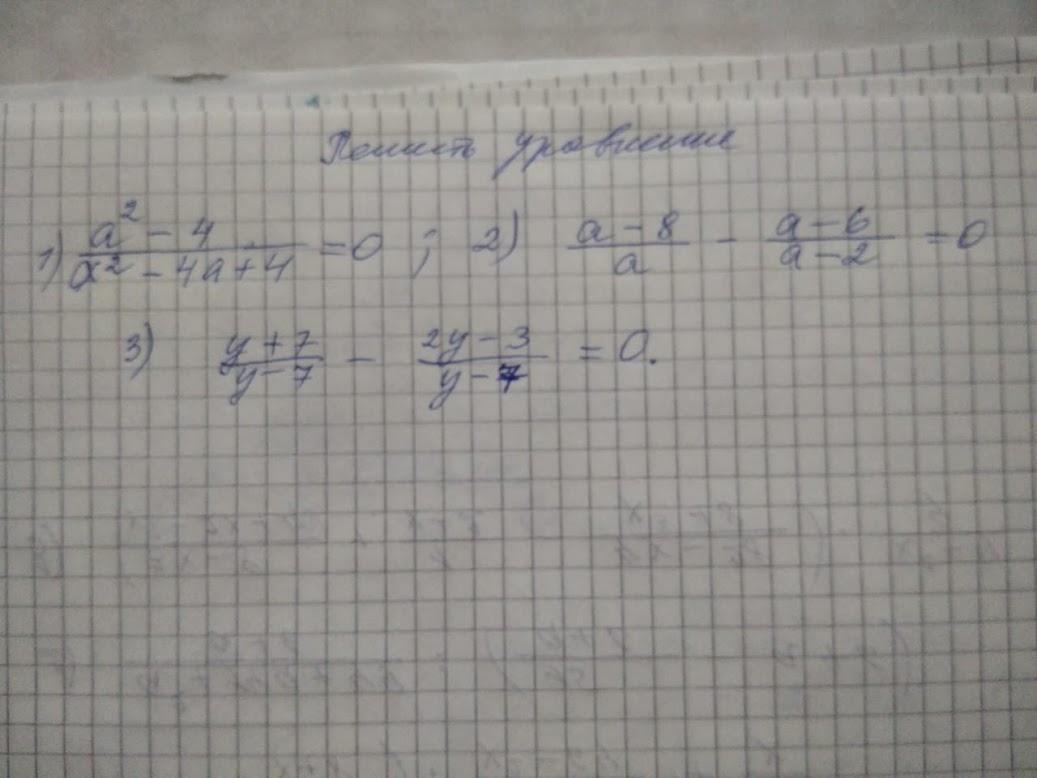 Решить уравнение
1) (a² - 4)/(a² - 4a + 4) = 0 ; 2) (a - 8)/a - (a - 6)/(a - 2) = 0
3) (y + 7)/(y - 7) - (2y - 3)/(y - 7) = 0.